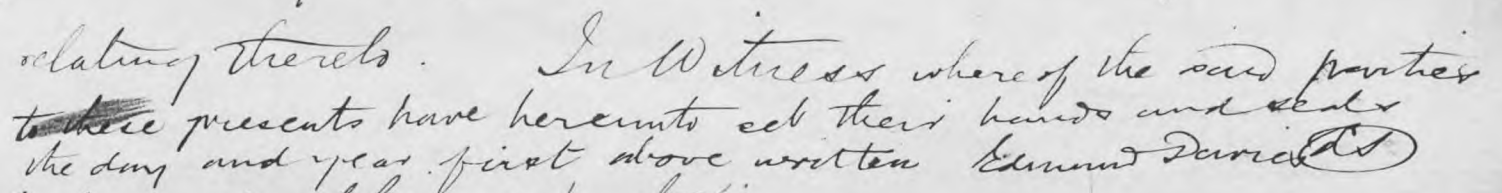 relating thereto. In Witness whereof the said parties
to these presents have hereunto set their hands and seals
the day and year first above written Edmund Davies LS